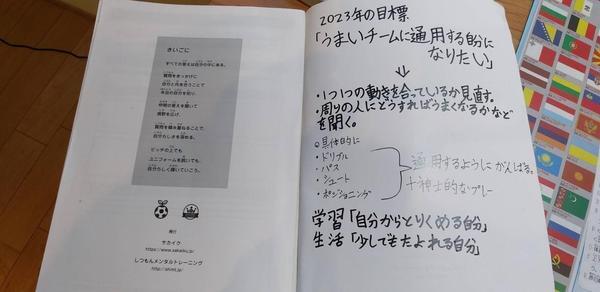 さいごに
すべての答えは自分の中にある。
質問をきっかけに
自分と向き合うことで
本当の自分を知り、
仲間の答えを聞いて
視野を広げ、
質問を積み重ねることで、
自分らしさを深める。
ピッチの上でも
ユニフォームを脱いでも、
自分らしく輝いていこう。
発行
サカイク
https://www.sakaiku.jp/
しつもんメンタルトレーニング
http://shimt.jp/
2023年の目標
「うまいチームに通用する自分に
なりたい」
・1つ1つの動きを合っているか見直す。
・周りの人にどうすればうまくなるかなど
を聞く。
◎具体的に
・ドリブル
・パス
・シュート
・ポジショニング
通用するようにがんばる。
十神士的なプレー
学習「自分からとりくめる自分」
生活「少しでもたよれる自分」